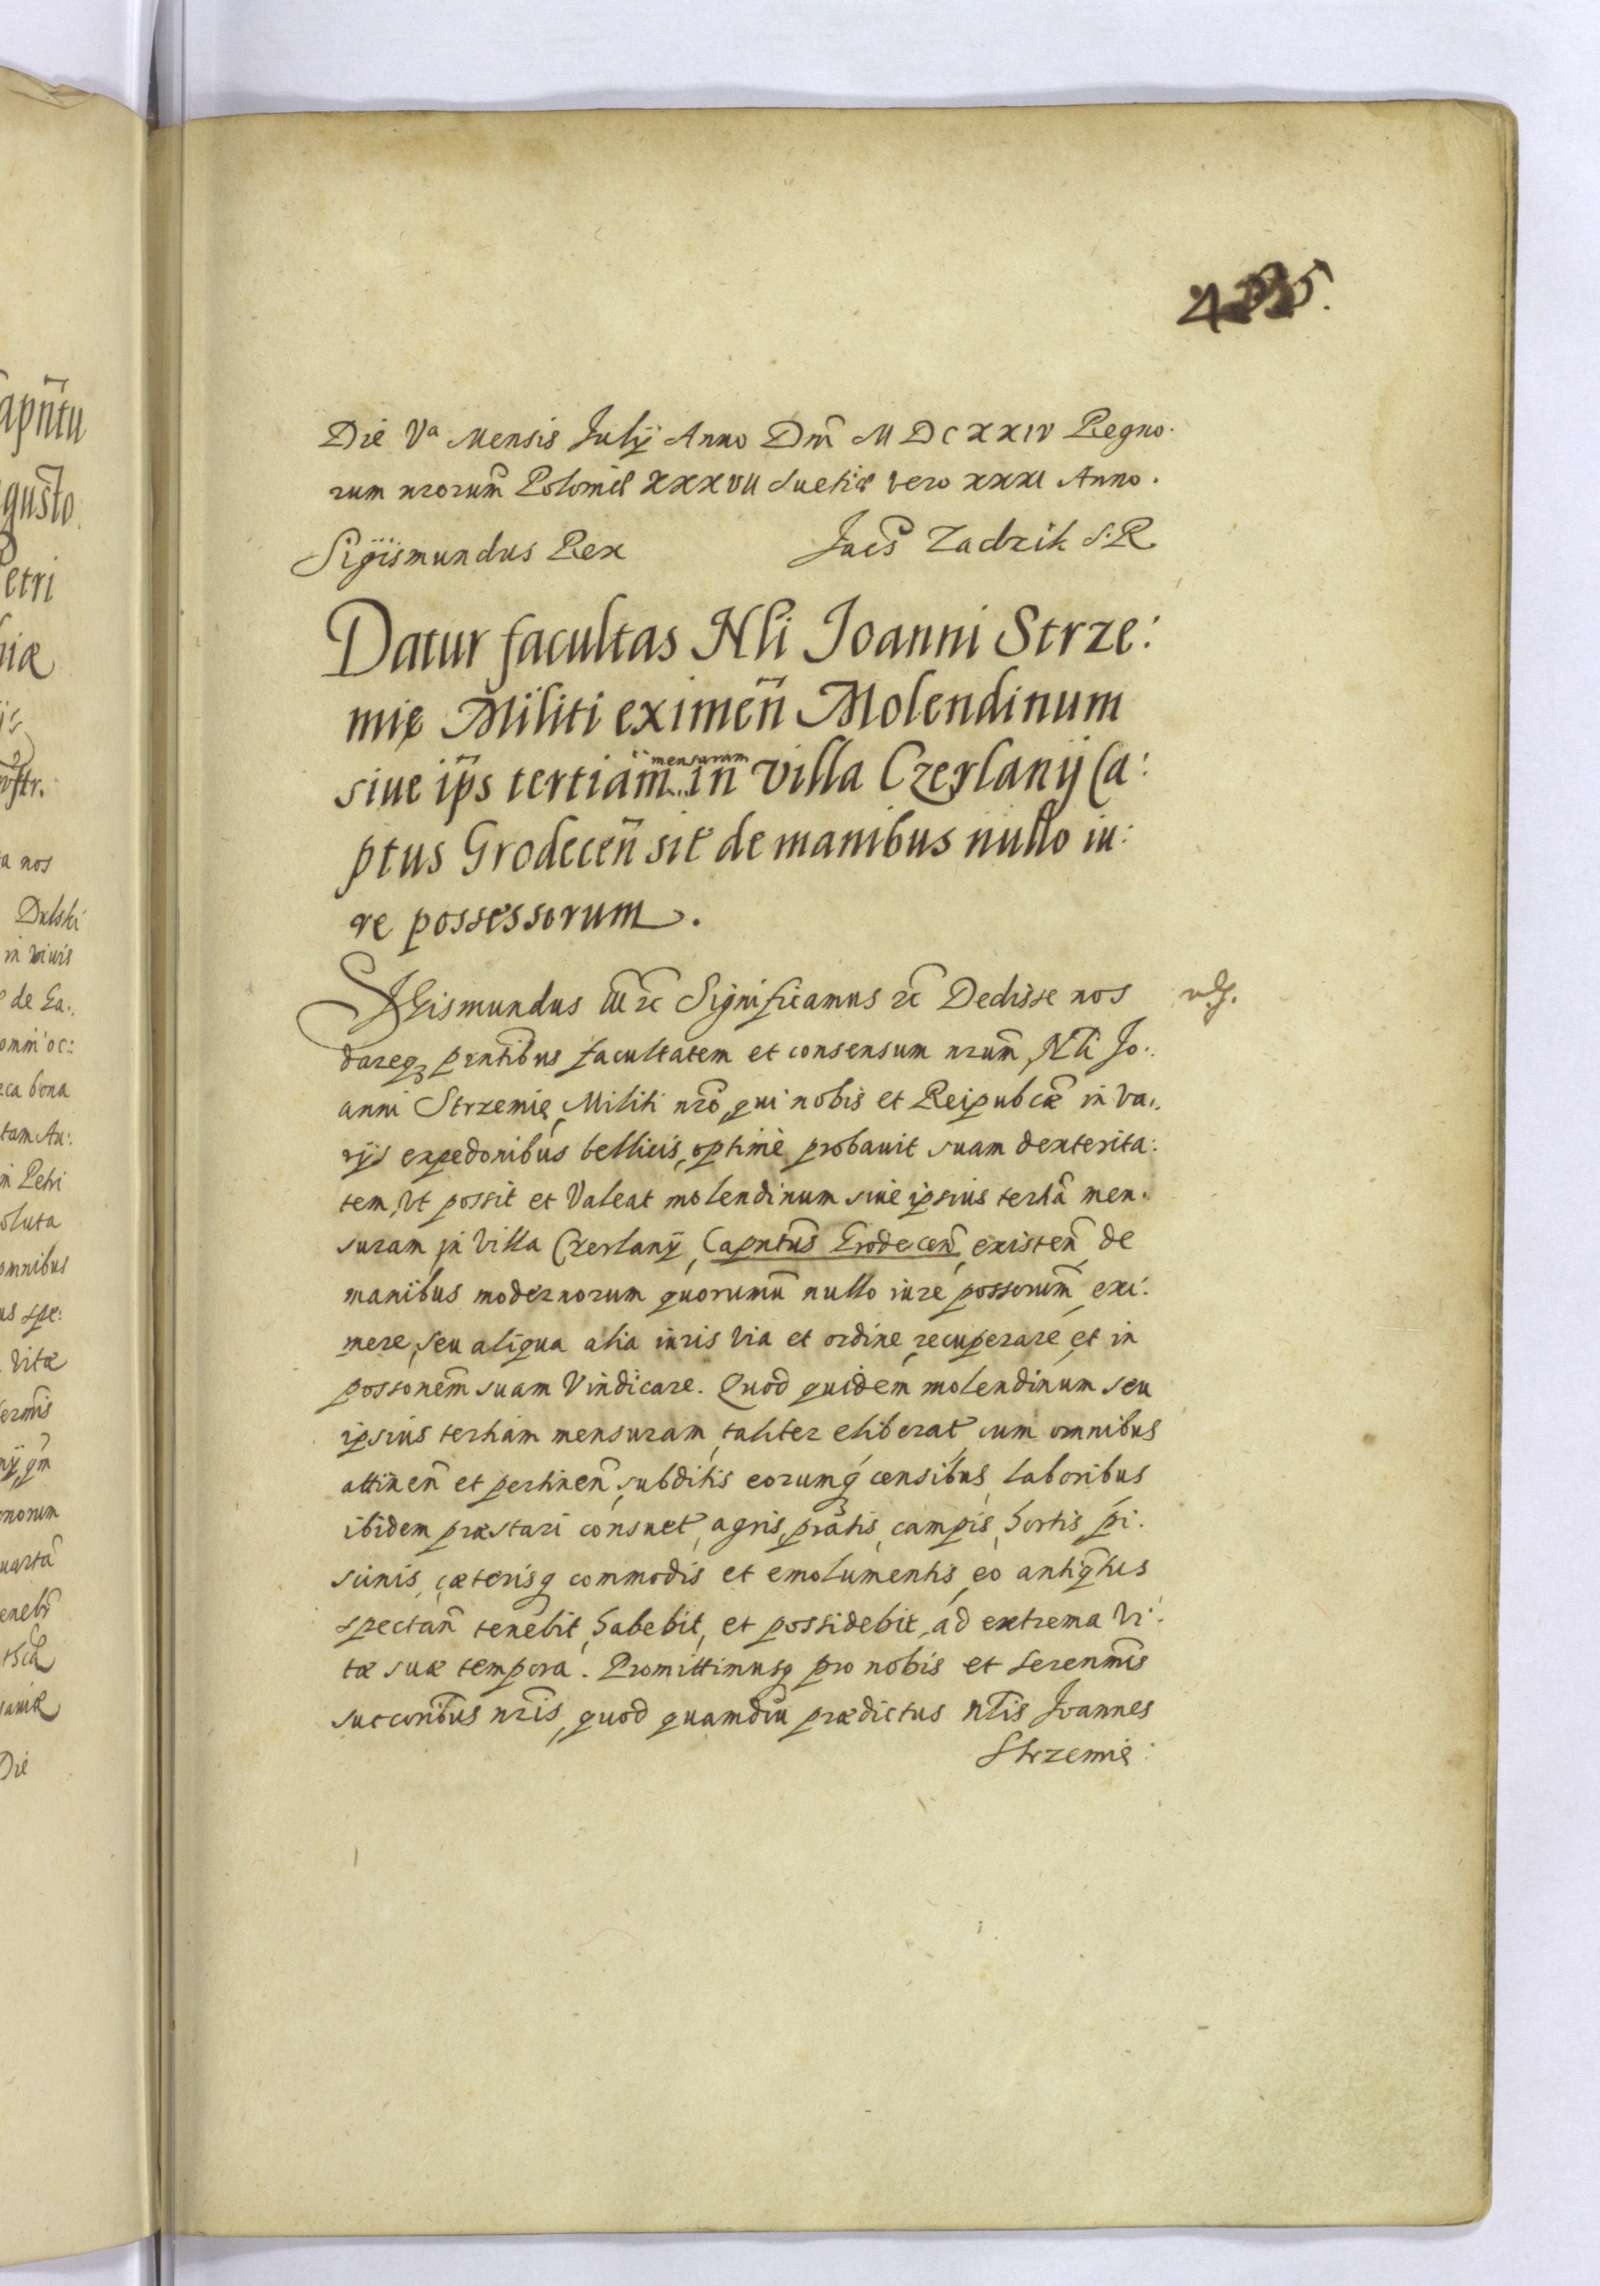 Die Va Mensis Julÿ Anno Dnĩ M DC XXIV Regno.
rum nrorum̃ Poloniæ XXXVII Suetiæ vero XXXI Anno.
Sigismundus Rex Jacs̃ Zadzik S. R
Datur facultas Nli Joanni Strze:
mię Militi eximeñ Molendinum
siue ip̃s tertiam mensuram in villa Czerlanÿ Ca:
ptus Grodeceñ sit̃ de manibus nullo iu:
re possessorum.
SIGismundus IIItc Significamus tc Dedisse nos
dareq3 prntibus̃ facultatem et consensum nrum̃, Nli Jo:
anni Strzemię Militi nrõ, qui nobis et Reipubcæ in va:
rÿs expedonibus bellicis, optimè probauit suam dexterita:
tem, Vt possit et Valeat molendinum siue ipsius tertiã men.
suram in Villa Czerlanÿ, Capntus̃ Grodeceñ, existeñ de
manibus modernorum quorumũ nullo iure possorum̃ exi:
mere, seu aliqua alia iuris via et ordine recuperare et in
possonem̃ suam Vindicare. Quod quidem molendinum seu
ipsius tertiam mensuram, taliter eliberat̃ cum omnibus
attineñ et pertineñ, subditis eorumq́ censibus, laboribus
ibidem præstari consuet̃, agris, pratis, campis, hortis pi:
scinis, cæterisq commodis et emolumentis, eo antiqtus̃
spectañ tenebit, habebit, et possidebit, ad extrema Vi:
tæ suæ tempora. Promittimusq pro nobis et Serenmis̃
succoribus̃ nris̃, quod quamdiu prædictus nlis̃ Joannes
Strzemię